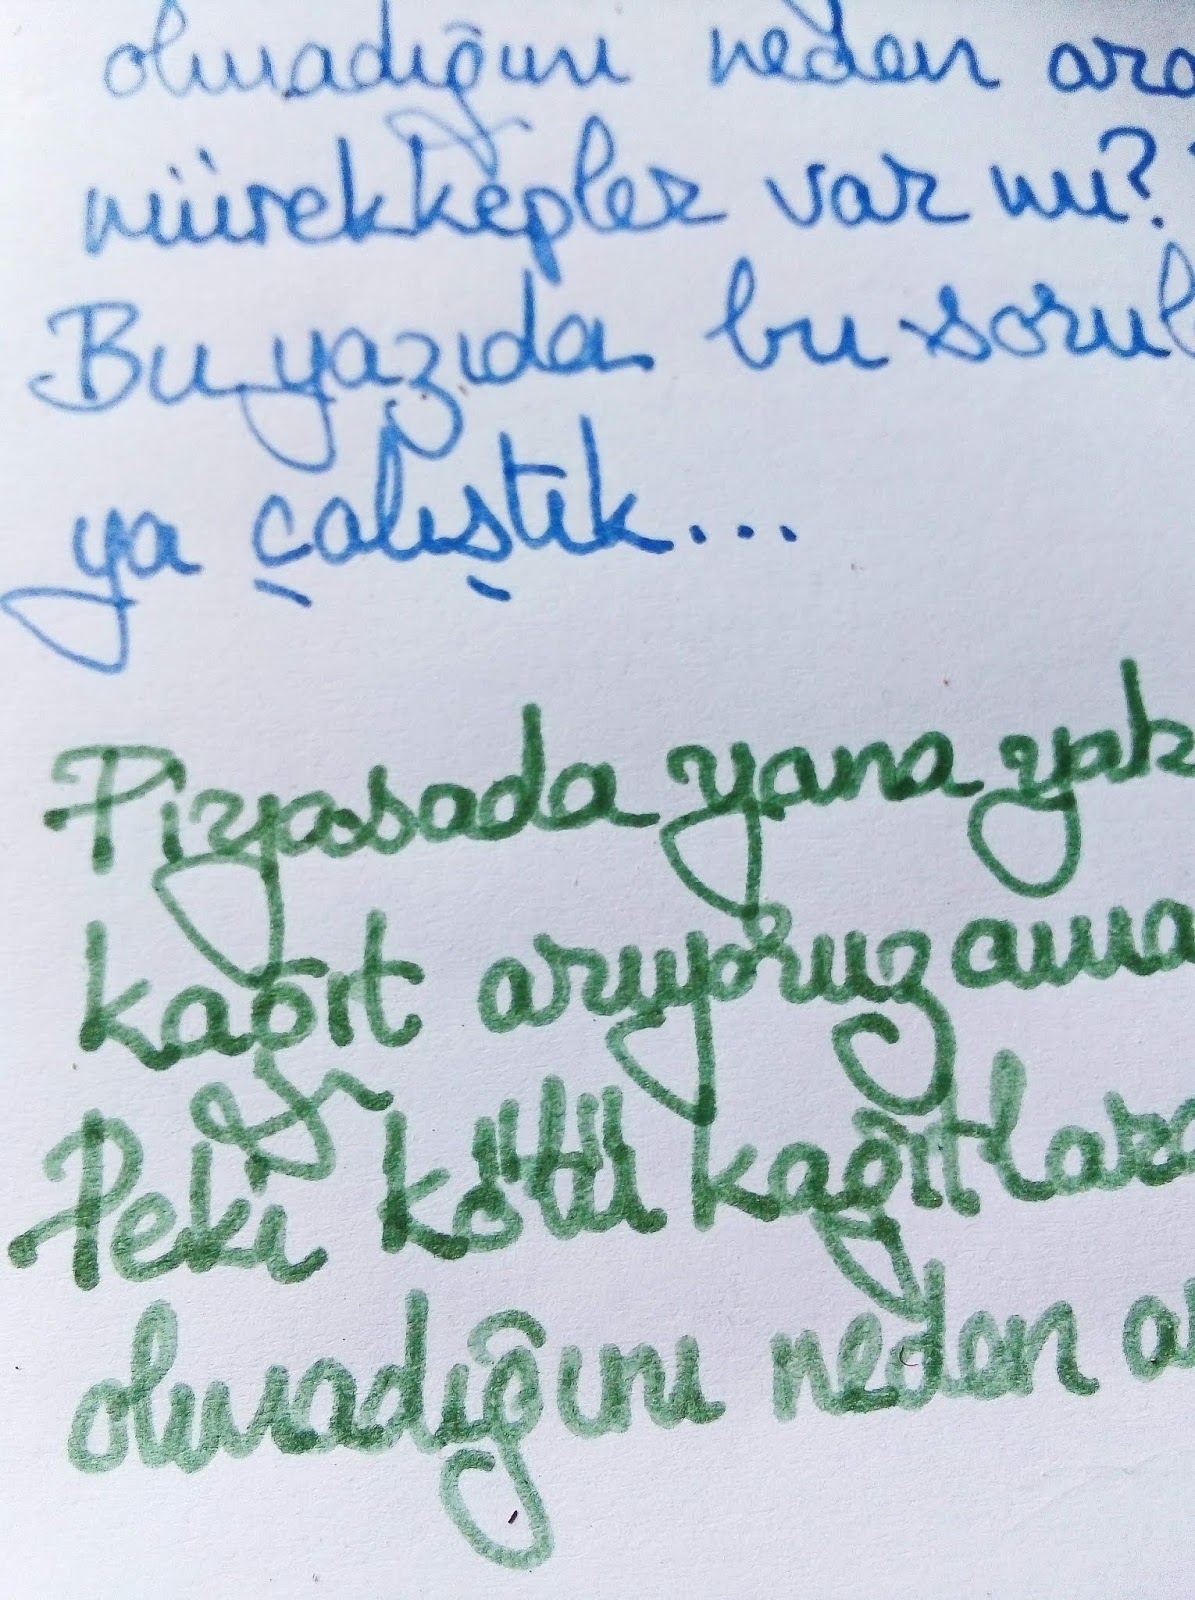 olmadığını neden ara
mürekkepler var mı?
Bu yazıda bu sorul
ya çalıştık...
Piyasada yana yak
kağıt arıyoruz ama
Peki kötü kağıtlar
olmadığını neden a